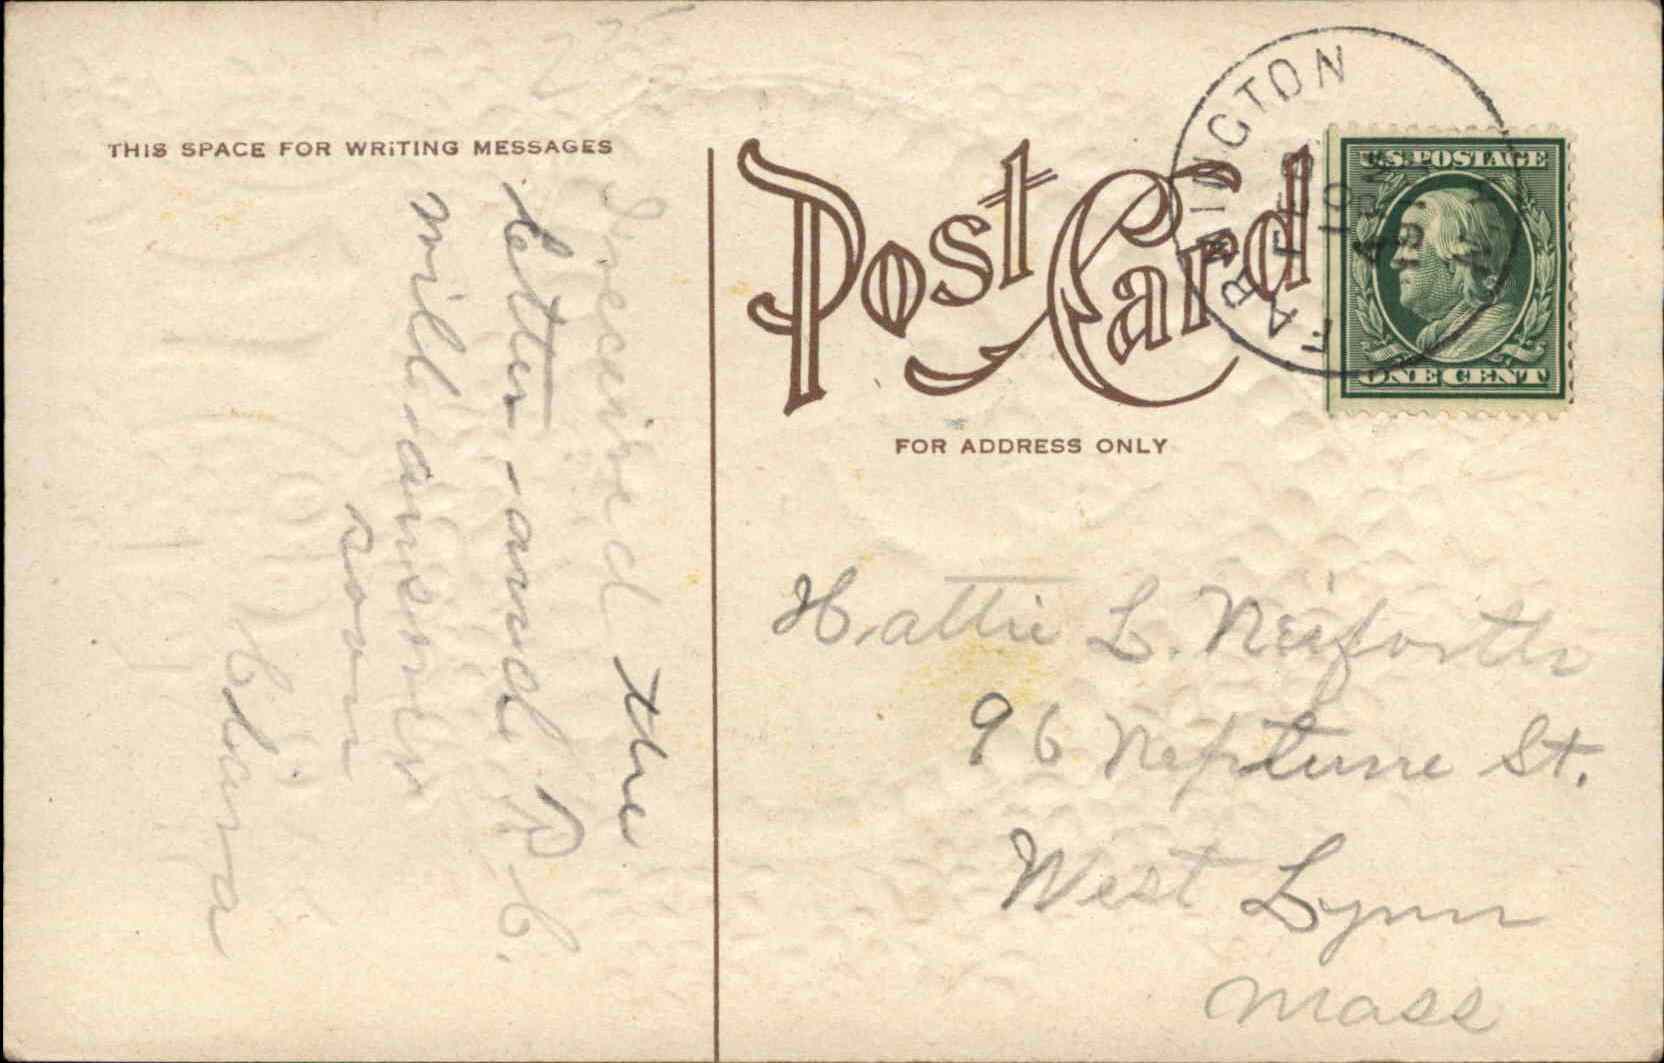 THIS SPACE FOR WRITING MESSAGES
I received the
letter and P.C.
will answer
soon
Clara
Post Card
FOR ADDRESS ONLY
FARMINGTON
FEB
U.S. POSTAGE
ONE CENT
Hattie L. Neiforth
96 Neptune St.
West Lynn
Mass